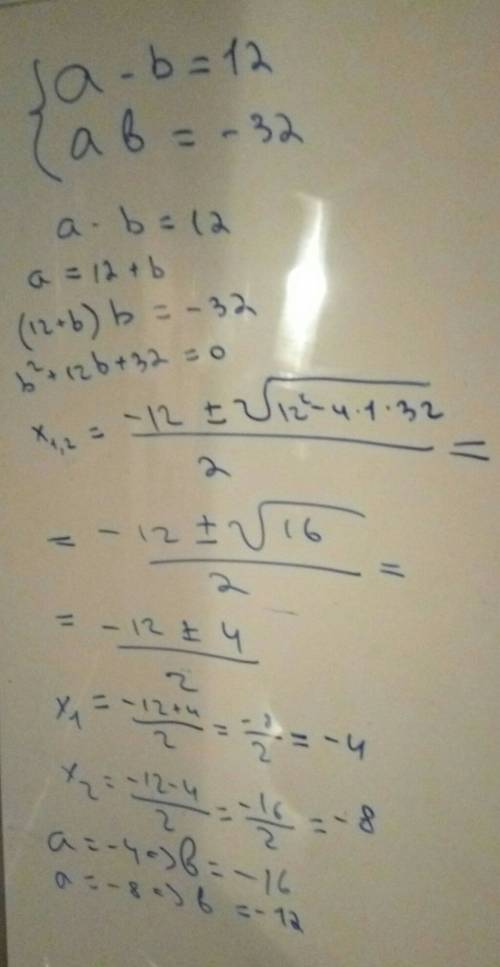 { a - b = 12
a b = -32
a - b = 12
a = 12 + b
(12+b) b = -32
b² + 12b + 32 = 0
x₁,₂ = (-12 ± √(12² - 4·1·32))/2 =
= (-12 ± √16)/2 =
= (-12 ± 4)/2
x₁ = (-12+4)/2 = (-8)/2 = -4
x₂ = (-12-4)/2 = (-16)/2 = -8
a = -4 => b = -16
a = -8 => b = -12